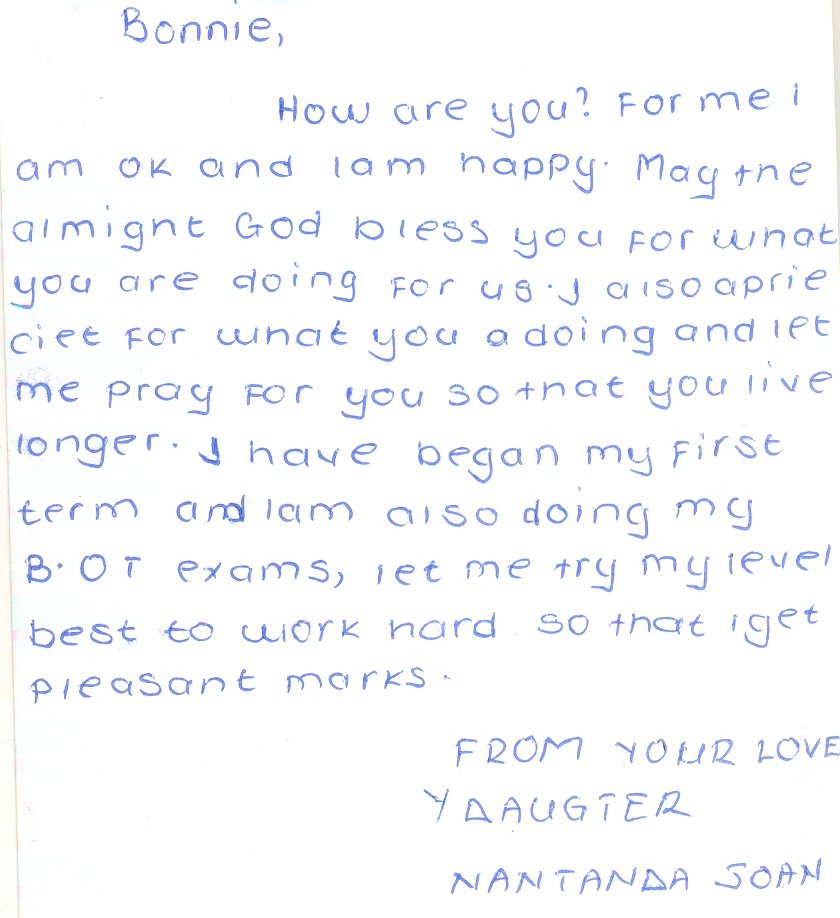 Bonnie,
How are you? For me I
am ok and Iam happy. May the
almight God bless you for what
you are doing for us. I also aprie
ciet for what you a doing and let
me pray for you so that you live
longer. I have began my first
term and Iam also doing my
B.OT exams, let me try my level
best to work hard so that iget
pleasant marks.
FROM YOUR LOVE
Y DAUGTER
NANTANDA JOAN